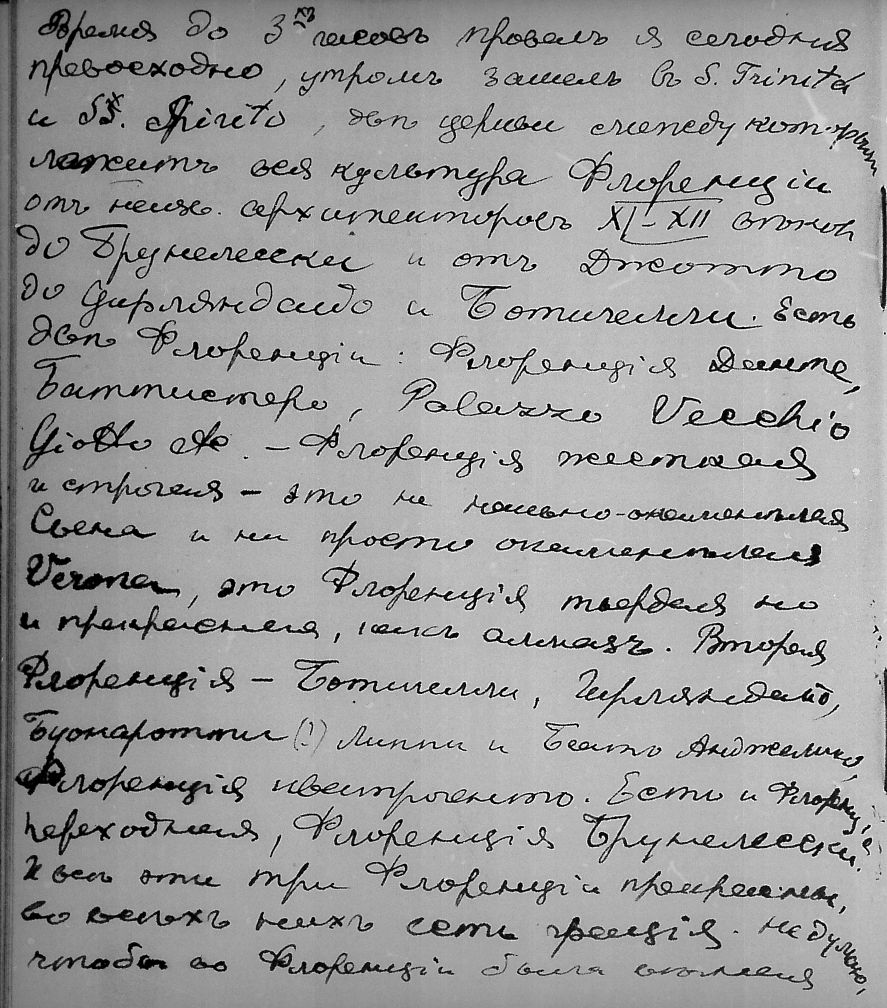 Время до 3хъ часовъ провелъ я сегодня
превосходно, утромъ зашелъ въ S. Trinità
и S. Spirito, двѣ церкви между которыми
лежитъ вся культура Флоренціи
отъ архитекторовъ XI–XII вѣковъ
до Брунелески и отъ Джотто
до Гирляндайо и Ботичелли. Есть
двѣ Флоренціи: Флоренція Данте,
Баттистеро, Palazzo Vecchio
Giotto etc. – Флоренція жесткая
и строгая – это не наивно-окаменѣлая
Сьена и не просто окаменѣлая
Verona, это Флоренція твердая но
и прекрасная, какъ алмазъ. Вторая
Флоренція – Ботичелли, Гирляндайо,
Буонаротти (!) Липпи и Беато Анджелико,
Флоренція кватроченто. Есть и Флоренція
переходная, Флоренція Брунелески.
И всѣ эти три Флоренціи прекрасны,
во всѣхъ нихъ есть грація. Не думаю,
чтобы во Флоренціи была